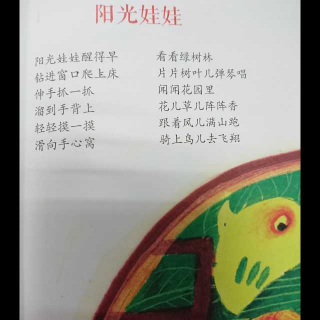 阳光娃娃
阳光娃娃醒得早
钻进窗口爬上床
伸手抓一抓
溜到手背上
轻轻摸一摸
滑向手心窝
看看绿树林
片片树叶儿弹琴唱
闻闻花园里
花儿草儿阵阵香
跟着风儿满山跑
骑上鸟儿去飞翔